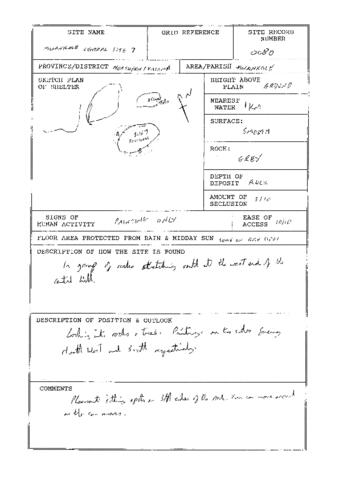 SITE NAME
GRID REFERENCE
SITE RECORD NUMBER
CENTRAL SITE 7
0080
PROVINCE/DISTRICT
AREA/PARISH
SKETCH PLAN OF SHELTER
N
SITE 7
HEIGHT ABOVE PLAIN GROUND
NEAREST WATER 1 Km
SURFACE:
SMOOTH
ROCK:
GREY
DEPTH OF DEPOSIT ROCK
AMOUNT OF SECLUSION 5/10
SIGNS OF HUMAN ACTIVITY PAINTING ONLY
EASE OF ACCESS 10/10
FLOOR AREA PROTECTED FROM RAIN & MIDDAY SUN
DESCRIPTION OF HOW THE SITE IS FOUND
In group of rocks stretching out to the west end of the
central hill.
DESCRIPTION OF POSITION & OUTLOOK
Looking into rocks & trees. Paintings on two sides facing
North West and South respectively.
COMMENTS
Pleasant sitting spots on all sides of the rock. You can move around
as the sun moves.